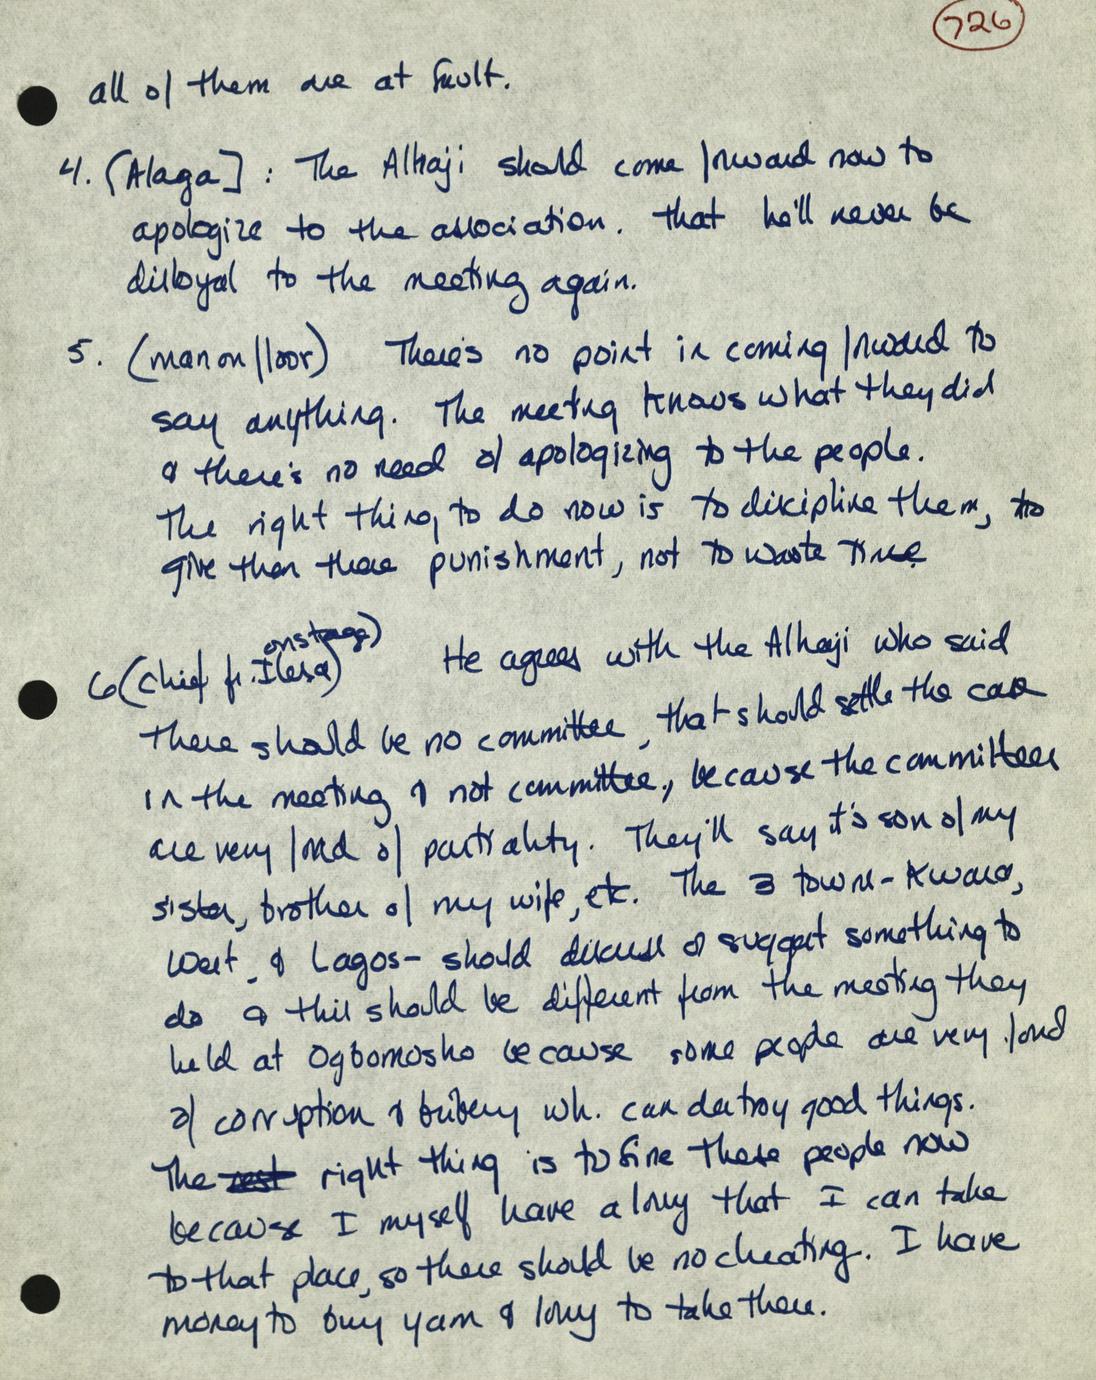 726
all of them are at fault.
4. [Alaga] : The Alhaji should come forward now to
apologize to the association. that he'll never be
disloyal to the meeting again.
5. (man on floor) There's no point in coming forward to
say anything. The meeting knows what they did
& there's no need of apologizing to the people.
The right thing to do now is to discipline them, to
give them there punishment, not to waste time
onstage)
6 (Chief fr. Ilesa) He agrees with the Alhaji who said
there should be no committee, that should settle the case
in the meeting & not committee, because the committees
are very fond of partiality. They'll say it's son of my
sister, brother of my wife, etc. The 3 towns - Kwara,
West, & Lagos - should discuss & suggest something to
do & this should be different from the meeting they
held at Ogbomosho because some people are very fond
of corruption & bribery wh. can destroy good things.
The rest right thing is to fine these people now
because I myself have a lorry that I can take
to that place, so there should be no cheating. I have
money to buy yam & lorry to take there.